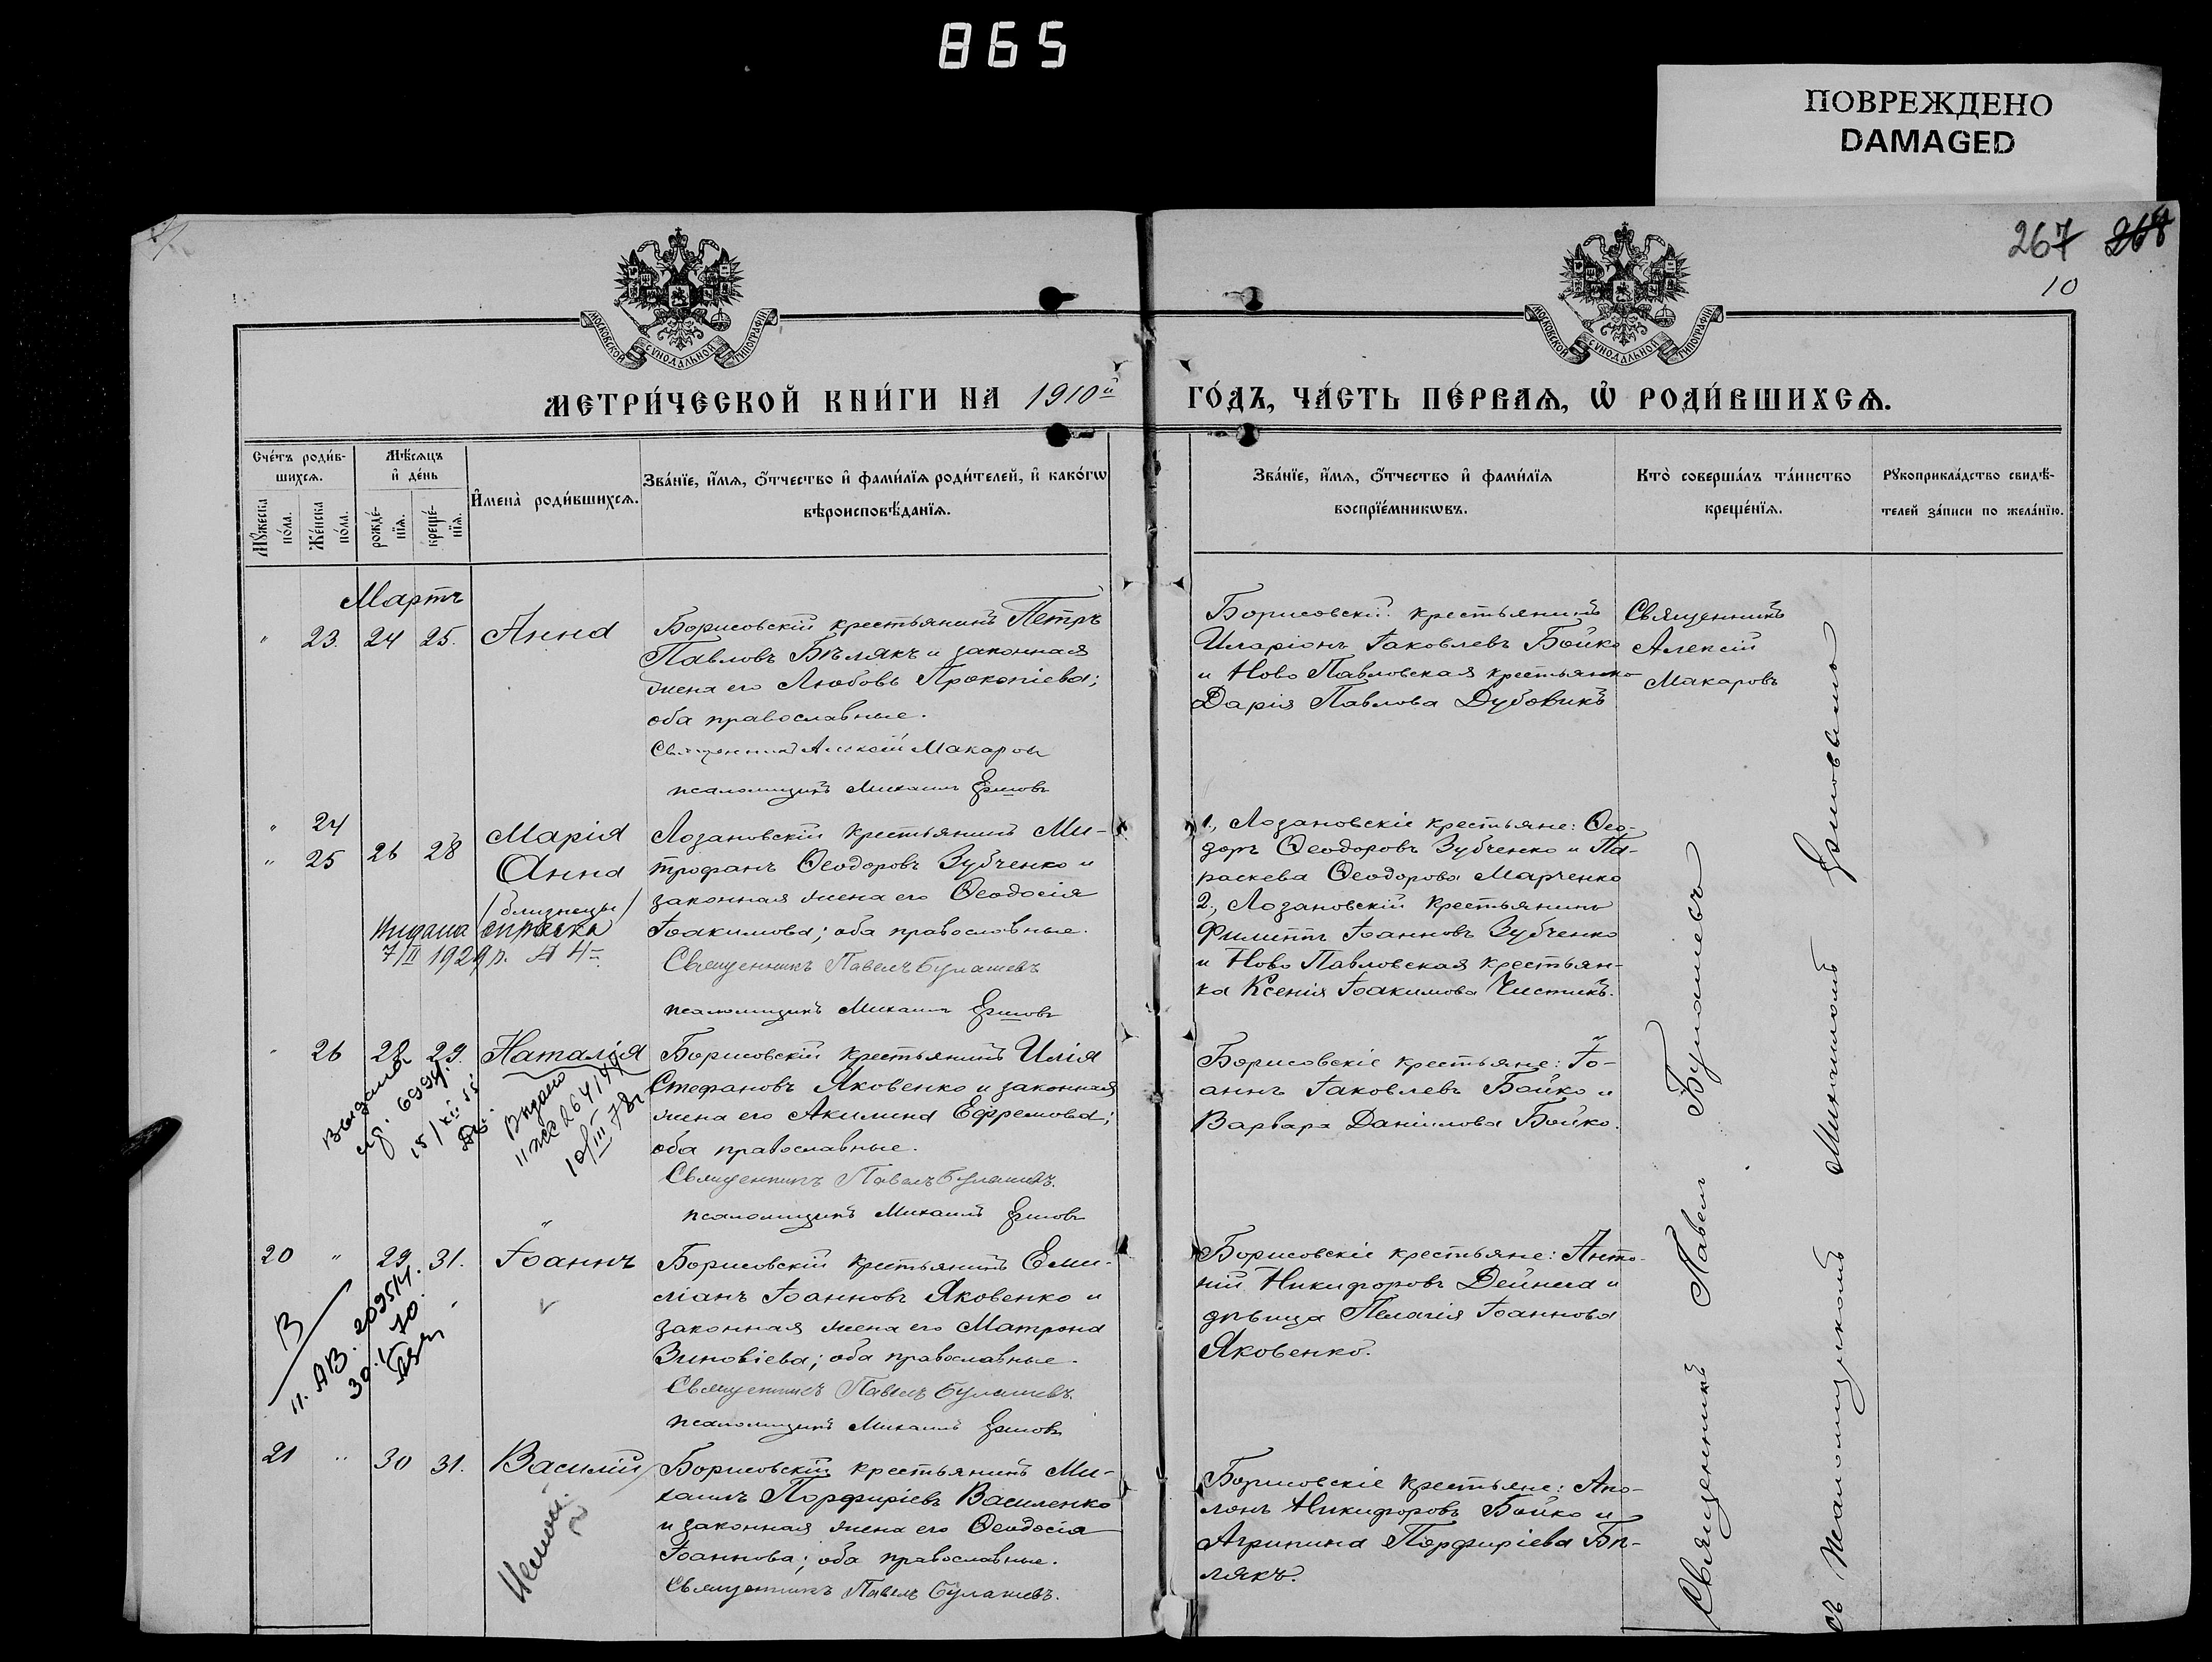 865
ПОВРЕЖДЕНО
DAMAGED
267 268
10
МОСКОВСКОЙ СѴНОДАЛЬНОЙ ТИПОГРАФІИ
МОСКОВСКОЙ СѴНОДАЛЬНОЙ ТИПОГРАФІИ
МЕТРИ́ЧЕСКОЙ КНИ́ГИ НА 1910й ГО́ДЪ, ЧА́СТЬ ПЕ́РВАѦ, Ѿ РОДИ́ВШИХСѦ.
Сче́тъ роди́в-
шихсѧ.
Мꙋжеска по́ла.
Же́нска по́ла.
Мѣ́сѧцъ
и҆ де́нь
рожде́-
нїѧ.
креще́-
нїѧ.
И҆мена̀ роди́вшихсѧ.
Зва́нїе, и҆́мѧ, ѻ҆́тчество и҆ фами́лїѧ роди́телей, и҆ како́гѡ
вѣроисповѣ́данїѧ.
Зва́нїе, и҆́мѧ, ѻ҆́тчество и҆ фами́лїѧ
воспрїе́мникѡвъ.
Кто̀ соверша́лъ та́инство
креще́нїѧ.
Рꙋкоприкла́дство свидѣ́-
телей за́писи по жела́нїю.
Мартъ
" 23. 24 25. Анна
Борисовскій крестьянинъ Петръ
Павловъ Бѣлякъ и законная
жена его Любовь Прокопіева;
оба православные.
Священникъ Алексій Макаровъ
псаломщикъ Михаилъ Ершовъ
Борисовскій крестьянинъ
Иларіонъ Іаковлевъ Бойко
и Ново Павловская крестьянка
Дарія Павлова Дубовикъ
Священникъ
Алексій
Макаровъ
" 24
" 25 26 28 Марія
Анна
/близнецы/
Видана виписка
7/II 1929 р. № 4
Лозановскій крестьянинъ Ми-
трофанъ Ѳеодоровъ Зубченко и
законная жена его Ѳеодосія
Іоакимова; оба православные.
Священникъ Павелъ Булашевъ
псаломщикъ Михаилъ Ершовъ
1., Лозановскіе крестьяне: Ѳео-
доръ Ѳеодоровъ Зубченко и Па-
раскева Ѳеодорова Марченко
2., Лозановскій крестьянинъ
Филиппъ Іоанновъ Зубченко
и Ново Павловская крестьян-
ка Ксенія Іоакимова Чистикъ.
" 26 28 29. Наталія
Выдана
15/XII 55
Видано
10/III 78г
Борисовскій крестьянинъ Илія
Стефановъ Яковенко и законная
жена его Акилина Ефремова;
оба православные.
Священникъ Павелъ Булашевъ.
псаломщикъ Михаилъ Ершовъ
Борисовскіе крестьяне: Іо-
аннъ Іаковлевъ Бойко и
Варвара Даніилова Бойко.
20 " 29 31. Іоаннъ
В
II. АВ. 209514.
Борисовскій крестьянинъ Еми-
ліанъ Іоанновъ Яковенко и
законная жена его Матрона
Зиновіева; оба православные.
Священникъ Павелъ Булашевъ.
псаломщикъ Михаилъ Ершовъ
Борисовскіе крестьяне: Анто-
ній Никифоровъ Дейнега и
дѣвица Пелагія Іоаннова
Яковенко.
21 " 30 31. Василій
Борисовскій крестьянинъ Ми-
хаилъ Порфиріевъ Василенко
и законная жена его Ѳеодосія
Іоаннова; оба православные.
Священникъ Павелъ Булашевъ.
Борисовскіе крестьяне: Апо-
лонъ Никифоровъ Бойко и
Агрипина Порфиріева Бѣ-
лякъ.
Священникъ Павелъ Булашевъ
съ псаломщикомъ Михаиломъ Ершовымъ